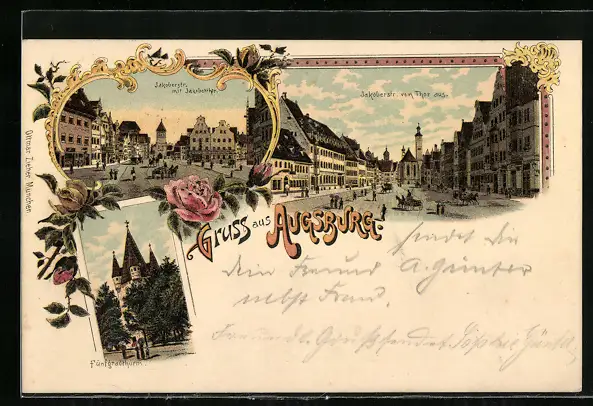 Jakoberstr.
mit Jakobsthor.
Jakoberstr. vom Thor aus.
Ottmar Zieher München
Gruss aus AUGSBURG.
Fünfgradthurm.
sendet die
dein Freund A. Günter
nebst Frau.
Freundl. Grüsse sendet Sophie